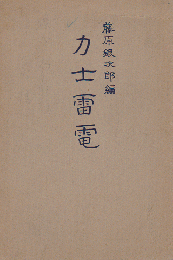 藤原銀次郎編
力士雷電